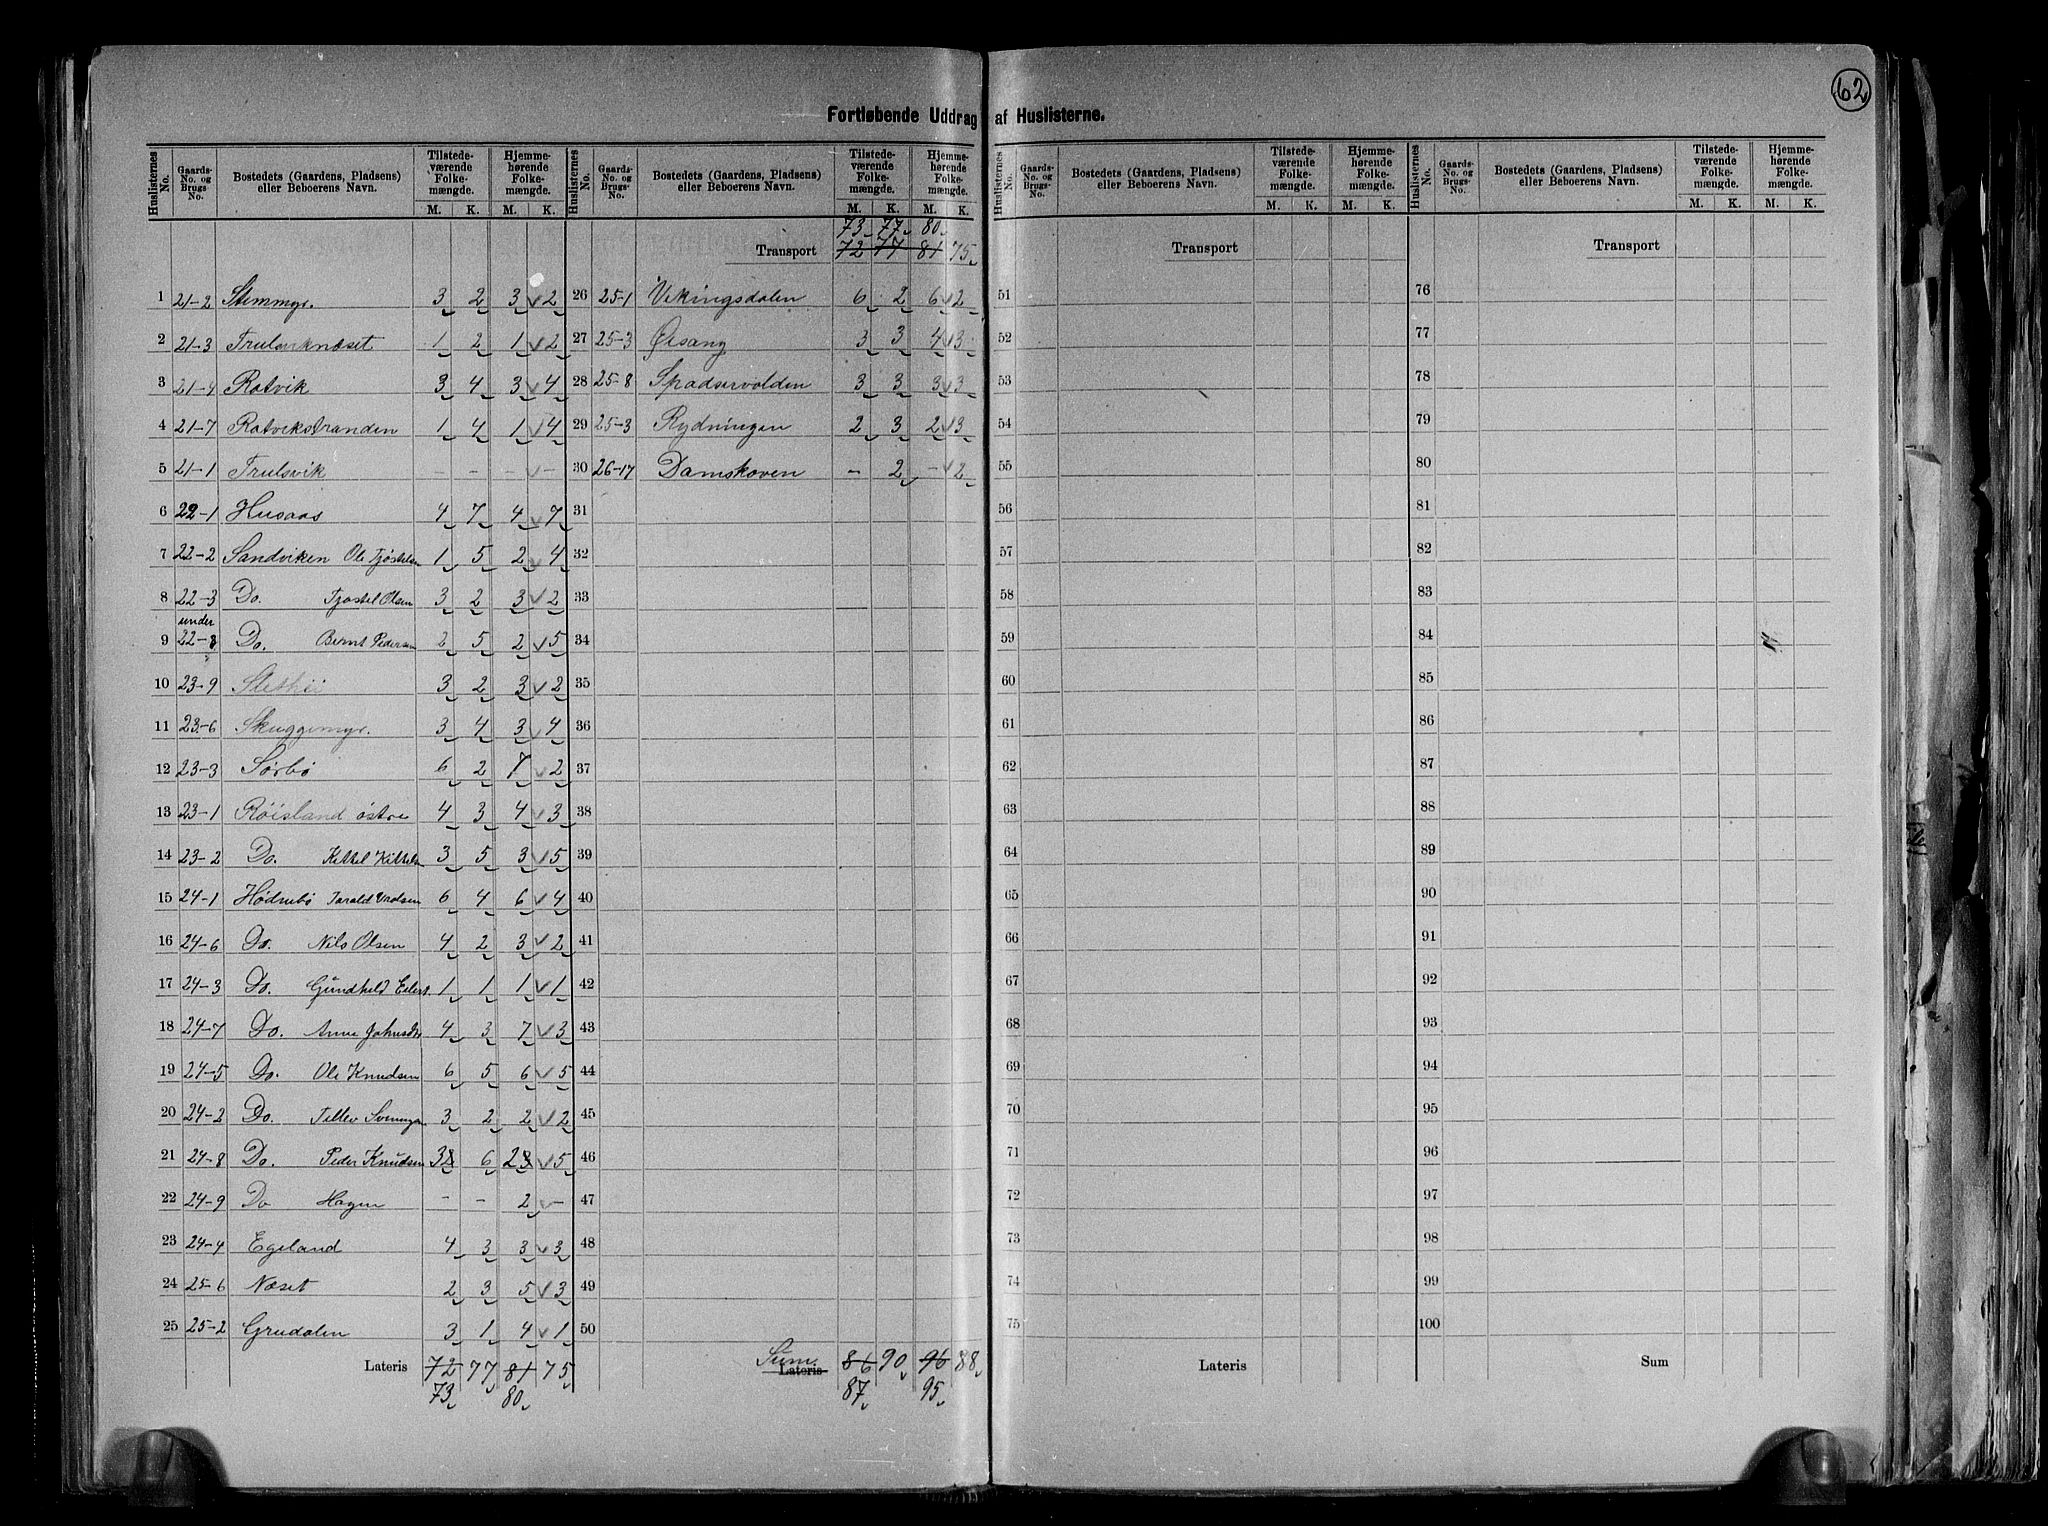 62
Fortløbende Uddrag af Huslisterne.
Huslisternes No. Gaards-No. og Brugs-No. Bostedets (Gaardens, Pladsens) eller Beboerens Navn. Tilstede-værende Folke-mængde. M. K. Hjemme-hørende Folke-mængde. M. K.
Huslisternes No. Gaards-No. og Brugs-No. Bostedets (Gaardens, Pladsens) eller Beboerens Navn. Tilstede-værende Folke-mængde. M. K. Hjemme-hørende Folke-mængde. M. K.
1 21-2 Stemmyr. 3 2 3 2
2 21-3 Trulsviknæset 1 2 1 2
3 21-4 Rotvik 3 4 3 4
4 21-7 Rotvikstranden 1 4 1 4
5 21-1 Trulsvik - - - -
6 22-1 Husaas 4 7 4 7
7 22-2 Sandviken Ole Tjøstelsen 1 5 2 4
8 22-3 Do. Tjøstel Olsen 3 2 3 2
under
9 22-3 Do. Bernt Pedersen 2 5 2 5
10 23-9 3 2 3 2
11 23-6 Skuggemyr. 3 4 3 4
12 23-3 Sørbø 6 2 7 2
13 23-1 Røisland østre 4 3 4 3
14 23-2 Do. Kittel Kittelsen 3 5 3 5
15 24-1 Hødnebø Tarald 6 4 6 4
16 24-6 Do. Nils Olsen 4 2 3 2
17 24-3 Do. Gundhild Eilert. 1 1 1 1
18 24-7 Do. Anne Johnsdtr 4 3 7 3
19 24-5 Do. Ole Knudsen 6 5 6 5
20 24-2 Do. Tellev 3 2 2 2
21 24-8 Do. Peder Knudsen 3 6 2 5
22 24-9 Do Hagen - - 2 -
23 24-4 Egeland 4 3 3 3
24 25-6 Næset 2 3 5 3
25 25-2 Grudalen 3 1 4 1
Lateris 72 77 81 75
73 80
73 77 80
Transport 72 77 81 75
26 25-1 Vikingsdalen 6 2 6 2
27 25-3 Øisang 3 3 4 3
28 25-8 Spadservolden 3 3 3 3
29 25-3 Rydningen 2 3 2 3
30 26-17 Damskoven - 2 - 2
31
32
33
34
35
36
37
38
39
40
41
42
43
44
45
46
47
48
49
50
Sum.
Lateris 86 90 96 88
87 95
Huslisternes No. Gaards-No. og Brugs-No. Bostedets (Gaardens, Pladsens) eller Beboerens Navn. Tilstede-værende Folke-mængde. M. K. Hjemme-hørende Folke-mængde. M. K.
Transport
51
52
53
54
55
56
57
58
59
60
61
62
63
64
65
66
67
68
69
70
71
72
73
74
75
Lateris
Huslisternes No. Gaards-No. og Brugs-No. Bostedets (Gaardens, Pladsens) eller Beboerens Navn. Tilstede-værende Folke-mængde. M. K. Hjemme-hørende Folke-mængde. M. K.
Transport
76
77
78
79
80
81
82
83
84
85
86
87
88
89
90
91
92
93
94
95
96
97
98
99
100
Sum